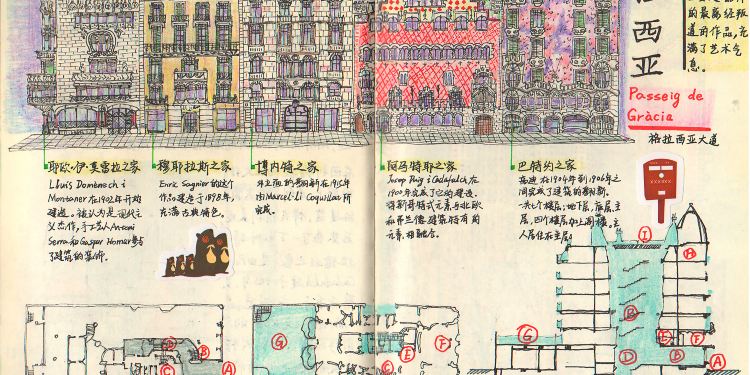 西亚
的最高经典
道的作品,充
满了艺术气
息。
Passeig de
Gràcia
格拉西亚大道
耶欧·伊·莫雷拉之家
Lluís Domènech i
Montaner 在1902年开始
建造。被认为是现代主
义杰作,手工艺人Antoni
Serra和Gaspar Homar参与
了建筑的装饰。
穆耶拉斯之家
Enric Sagnier的这个
作品建造于1898年,
充满古典特色。
博内特之家
外立面的翻新在1915年
由Marcel·Lí Coquillat所
完成。
阿马特耶之家
Josep Puig i Cadafalch在
1900年完成了它的建造。
将哥特式元素与北欧
和弗兰德建筑特有的
元素相融合。
巴特约之家
高迪在1904年到1906年之
间完成了建筑的翻新。
一共七个楼层;地下层、底层、主
层、四个楼层加上阁楼。主
人居住在主层。
I
H
G
D
B
C
A
G
E
F
B
E
F
D
B
A
C